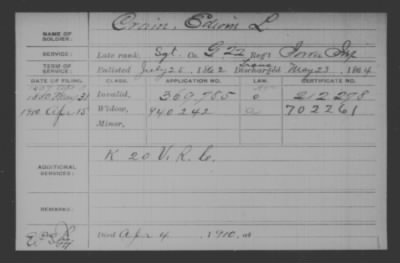 NAME OF SOLDIER: Crain, Edwin L
SERVICE: Late rank, Sgt. Co. G 22 Reg't Iowa Inf
TERM OF SERVICE: Enlisted July 25, 1862 Discharged May 23, 1864
DATE OF FILING. CLASS. APPLICATION NO. LAW. CERTIFICATE NO.
1880 May 31 Invalid, 369,785 212298
1910 Apr 15 Widow, 940242 702261
Minor,
ADDITIONAL SERVICES: K 20 V. R. C.
REMARKS:
Died Apr 4 1910, at